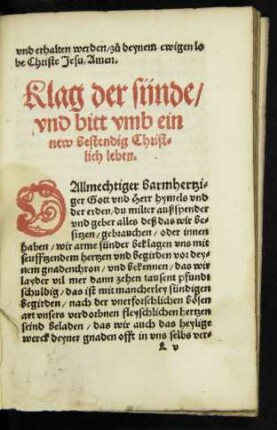 vnd erhalten werden/zů deynem ewigen lo
be Christe Jesu/Amen.
Klag der sünde/
vnd bitt vmb ein
new bestendig Christ-
lich leben.
O Allmechtiger barmhertzi-
ger Gott vnd Herr hymels vnd
der erden/du milter außspender
vnd geber alles deß das wir be-
sitzen/gebrauchen/oder innen
haben/wir arme sünder beklagen vns mit
seufftzendem hertzen vnd begirden vor dey-
nem gnadenthron/vnd bekennen/das wir
layder vil mer dann zehen tausent pfundt
schuldig/das ist mit mancherley sündigen
begirden/nach der vnerforschlichen bösen
art vnsers verdorbnen fleyschlichen hertzen
seind beladen/das wir auch das heylige
werck deyner gnaden offt in vns selbs ver-
v